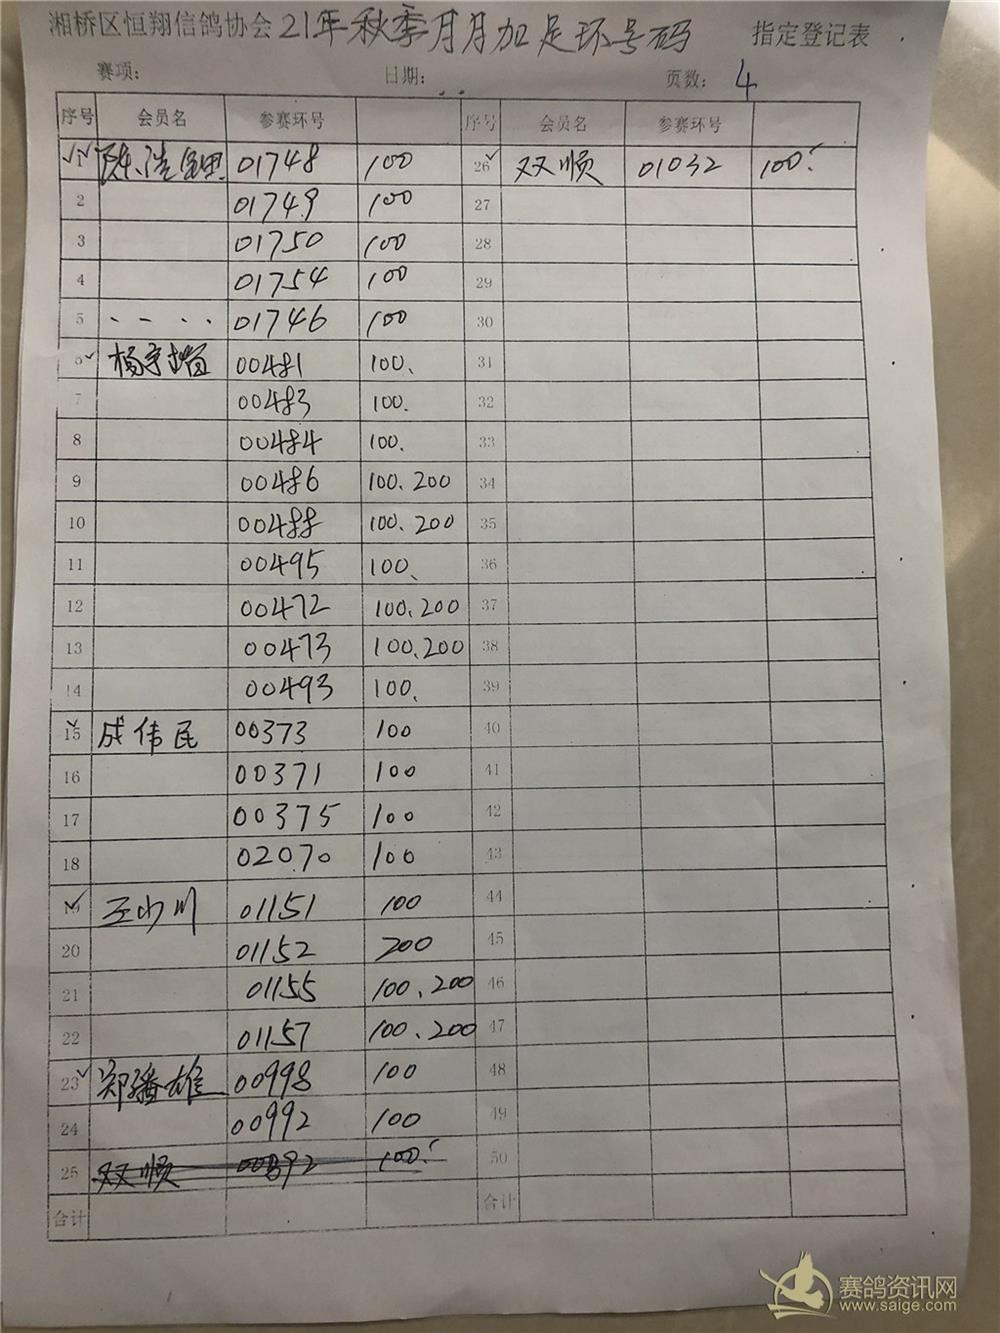 湘桥区恒翔信鸽协会21年秋季月月加足环号码 指定登记表
赛项: 日期: 页数: 4
序号 会员名 参赛环号 序号 会员名 参赛环号
1 陈 01748 100 26 双顺 01032 100.
2 01749 100 27
3 01750 100 28
4 01754 100 29
5 01746 100 30
6 杨 00481 100. 31
7 00483 100. 32
8 00484 100. 33
9 00486 100.200 34
10 00488 100.200 35
11 00495 100. 36
12 00472 100.200 37
13 00473 100.200 38
14 00493 100. 39
15 成伟民 00373 100 40
16 00371 100 41
17 00375 100 42
18 02070 100 43
19 王小川 01151 100 44
20 01152 200 45
21 01155 100.200 46
22 01157 100.200 47
23 郑潘雄 00998 100 48
24 00992 100 49
25 双顺 00892 100. 50
合计 合计
赛鸽资讯网
www.saige.com